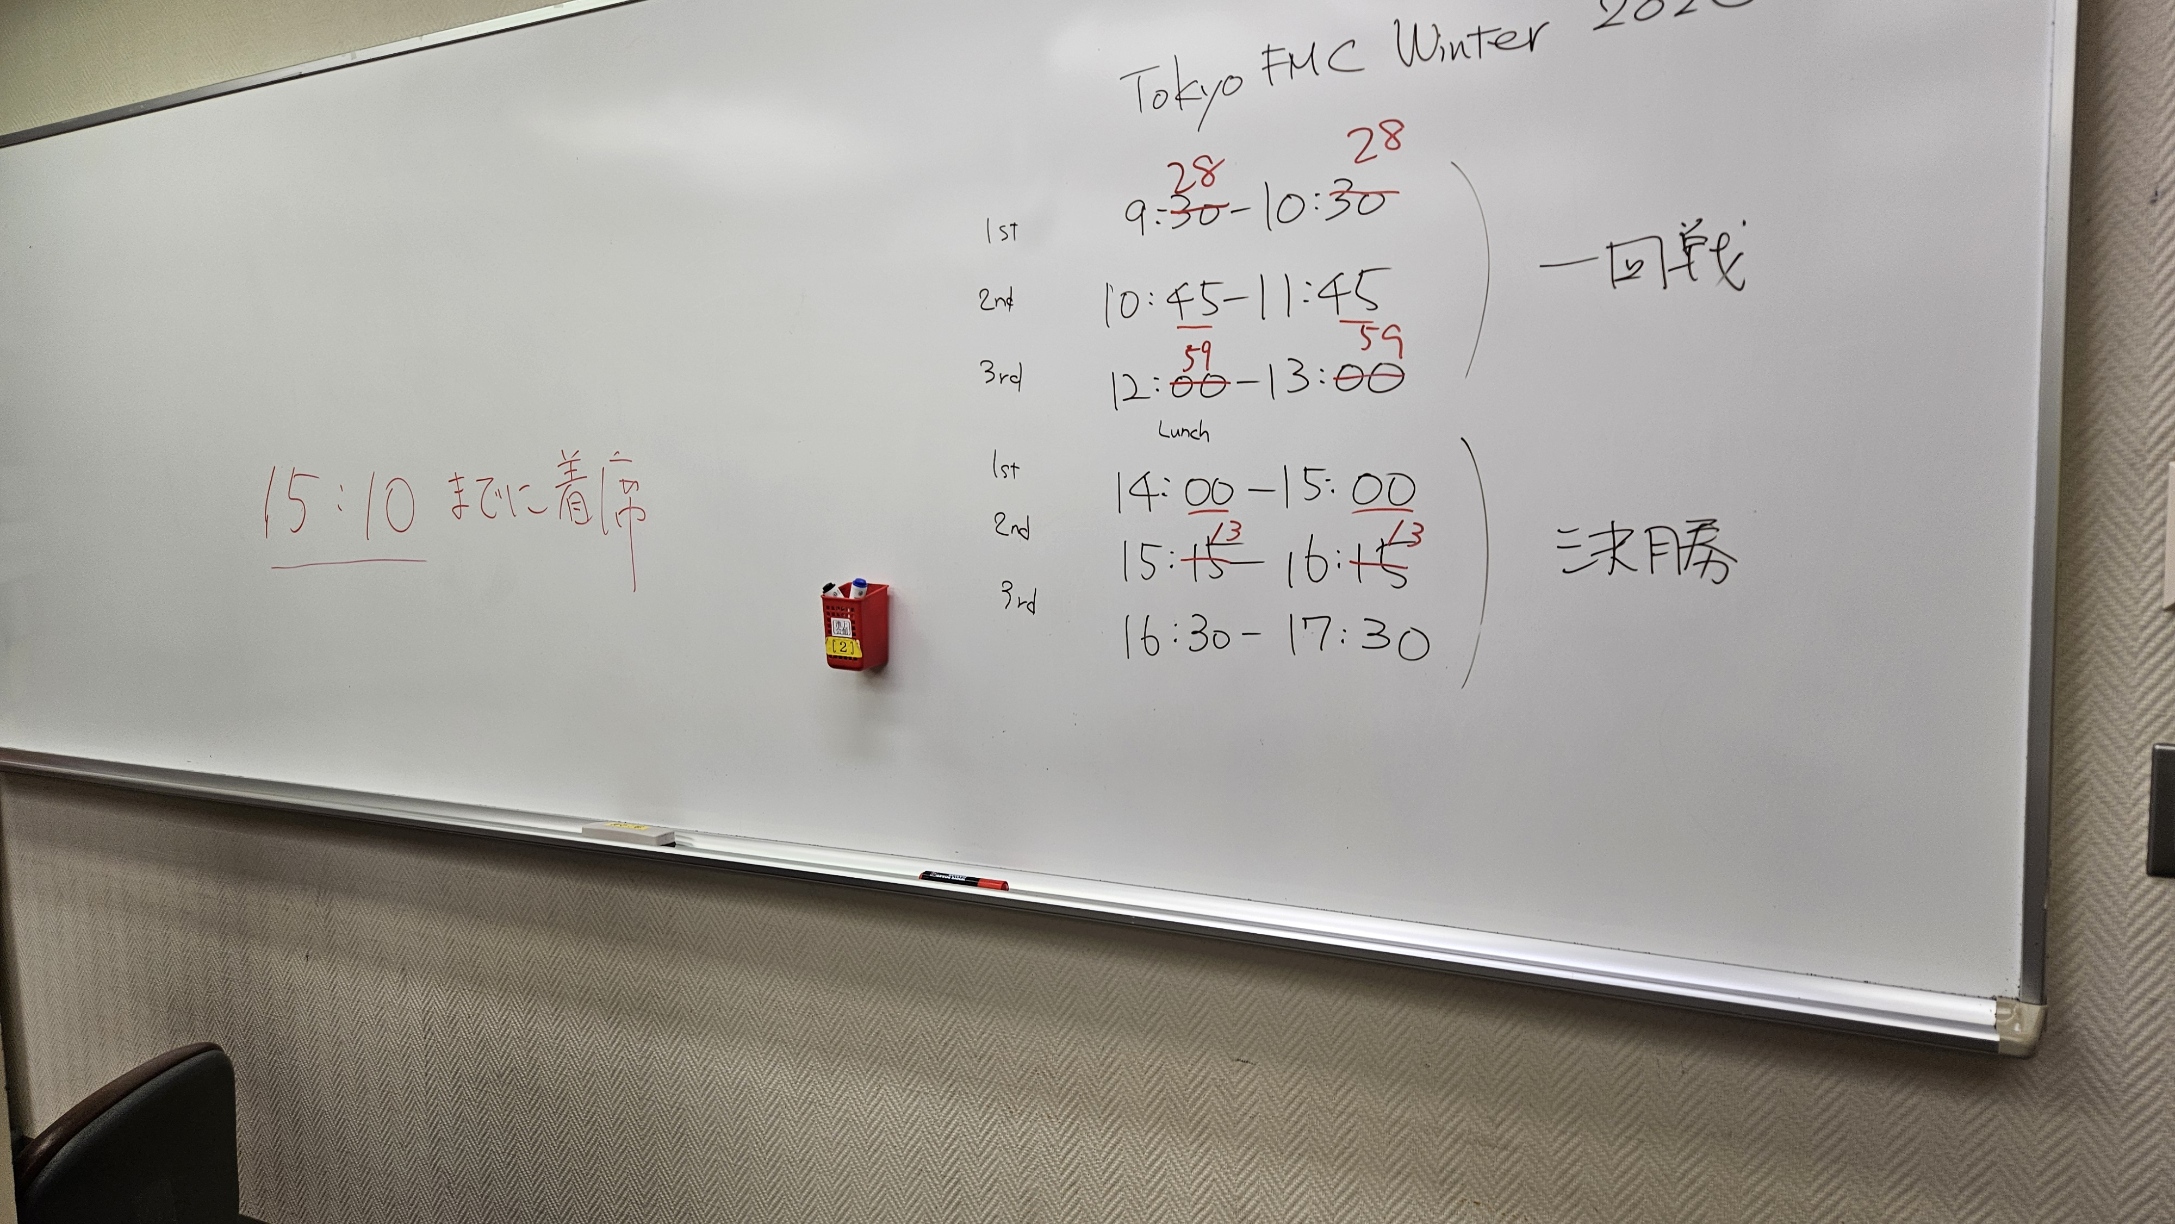 Tokyo FMC Winter
28 28
1st 9:30-10:30
一回戦
2nd 10:45-11:45
59 59
3rd 12:00-13:00
Lunch
1st 14:00-15:00
2nd 13 13
15:15-16:15
決勝
3rd
16:30-17:30
15:10 までに着席
[2]